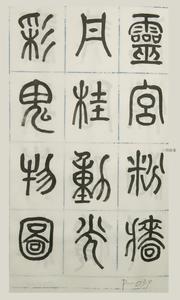 靈宮粉牆
月桂動光
彩鬼物圖
P-039